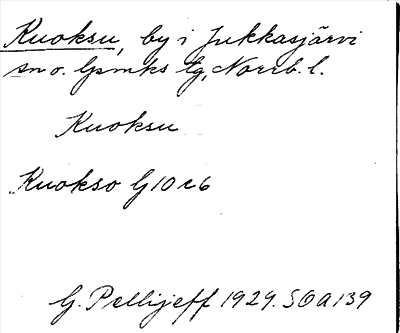 Kuoksu, by i Jukkasjärvi
sn o. lpmks tg, Norrb. l.
Kuoksu
Kuokso G10c6
G. Pellijeff 1929. SOA 139